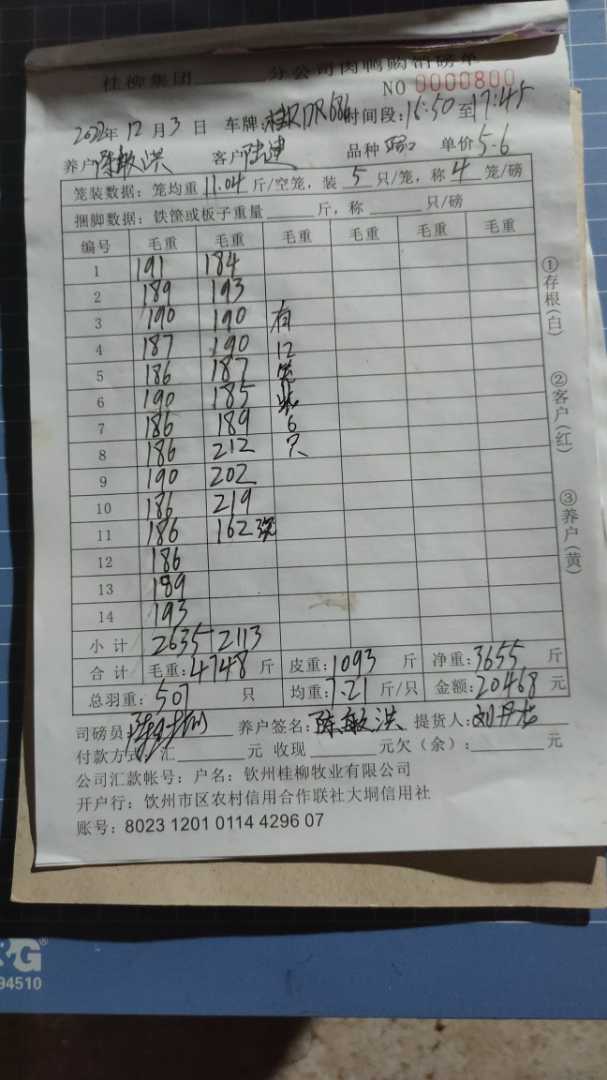 桂柳集团 分公司肉鸭购销磅单
NO 0000800
2022年 12月 3日 车牌:桂RDR686 时间段:16:50至17:45
养户 陈敏洪 客户 陆建 品种 单价 5.6
笼装数据: 笼均重 11.04 斤/空笼, 装 5 只/笼, 称 4 笼/磅
捆脚数据: 铁筐或板子重量 斤, 称 只/磅
编号 毛重 毛重 毛重 毛重 毛重 毛重
1 191 184
2 189 193
3 190 190 有
4 187 190 12
5 186 187 笼
6 190 185 装
7 186 189 6
8 186 212 只
9 190 202
10 186 219
11 186 162 3笼
12 186
13 189
14 193
小计 2635 2113
合计 毛重:4748 斤 皮重:1093 斤 净重:3655 斤
总羽重: 507 只 均重:7.21 斤/只 金额:20468 元
司磅员: 养户签名: 陈敏洪 提货人:刘丹龙
付款方式: 汇 元 收现 元欠(余): 元
公司汇款帐号: 户名: 钦州桂柳牧业有限公司
开户行: 钦州市区农村信用合作联社大垌信用社
账号: 8023 1201 0114 4296 07
①存根(白)
②客户(红)
③养户(黄)
&G®
94510